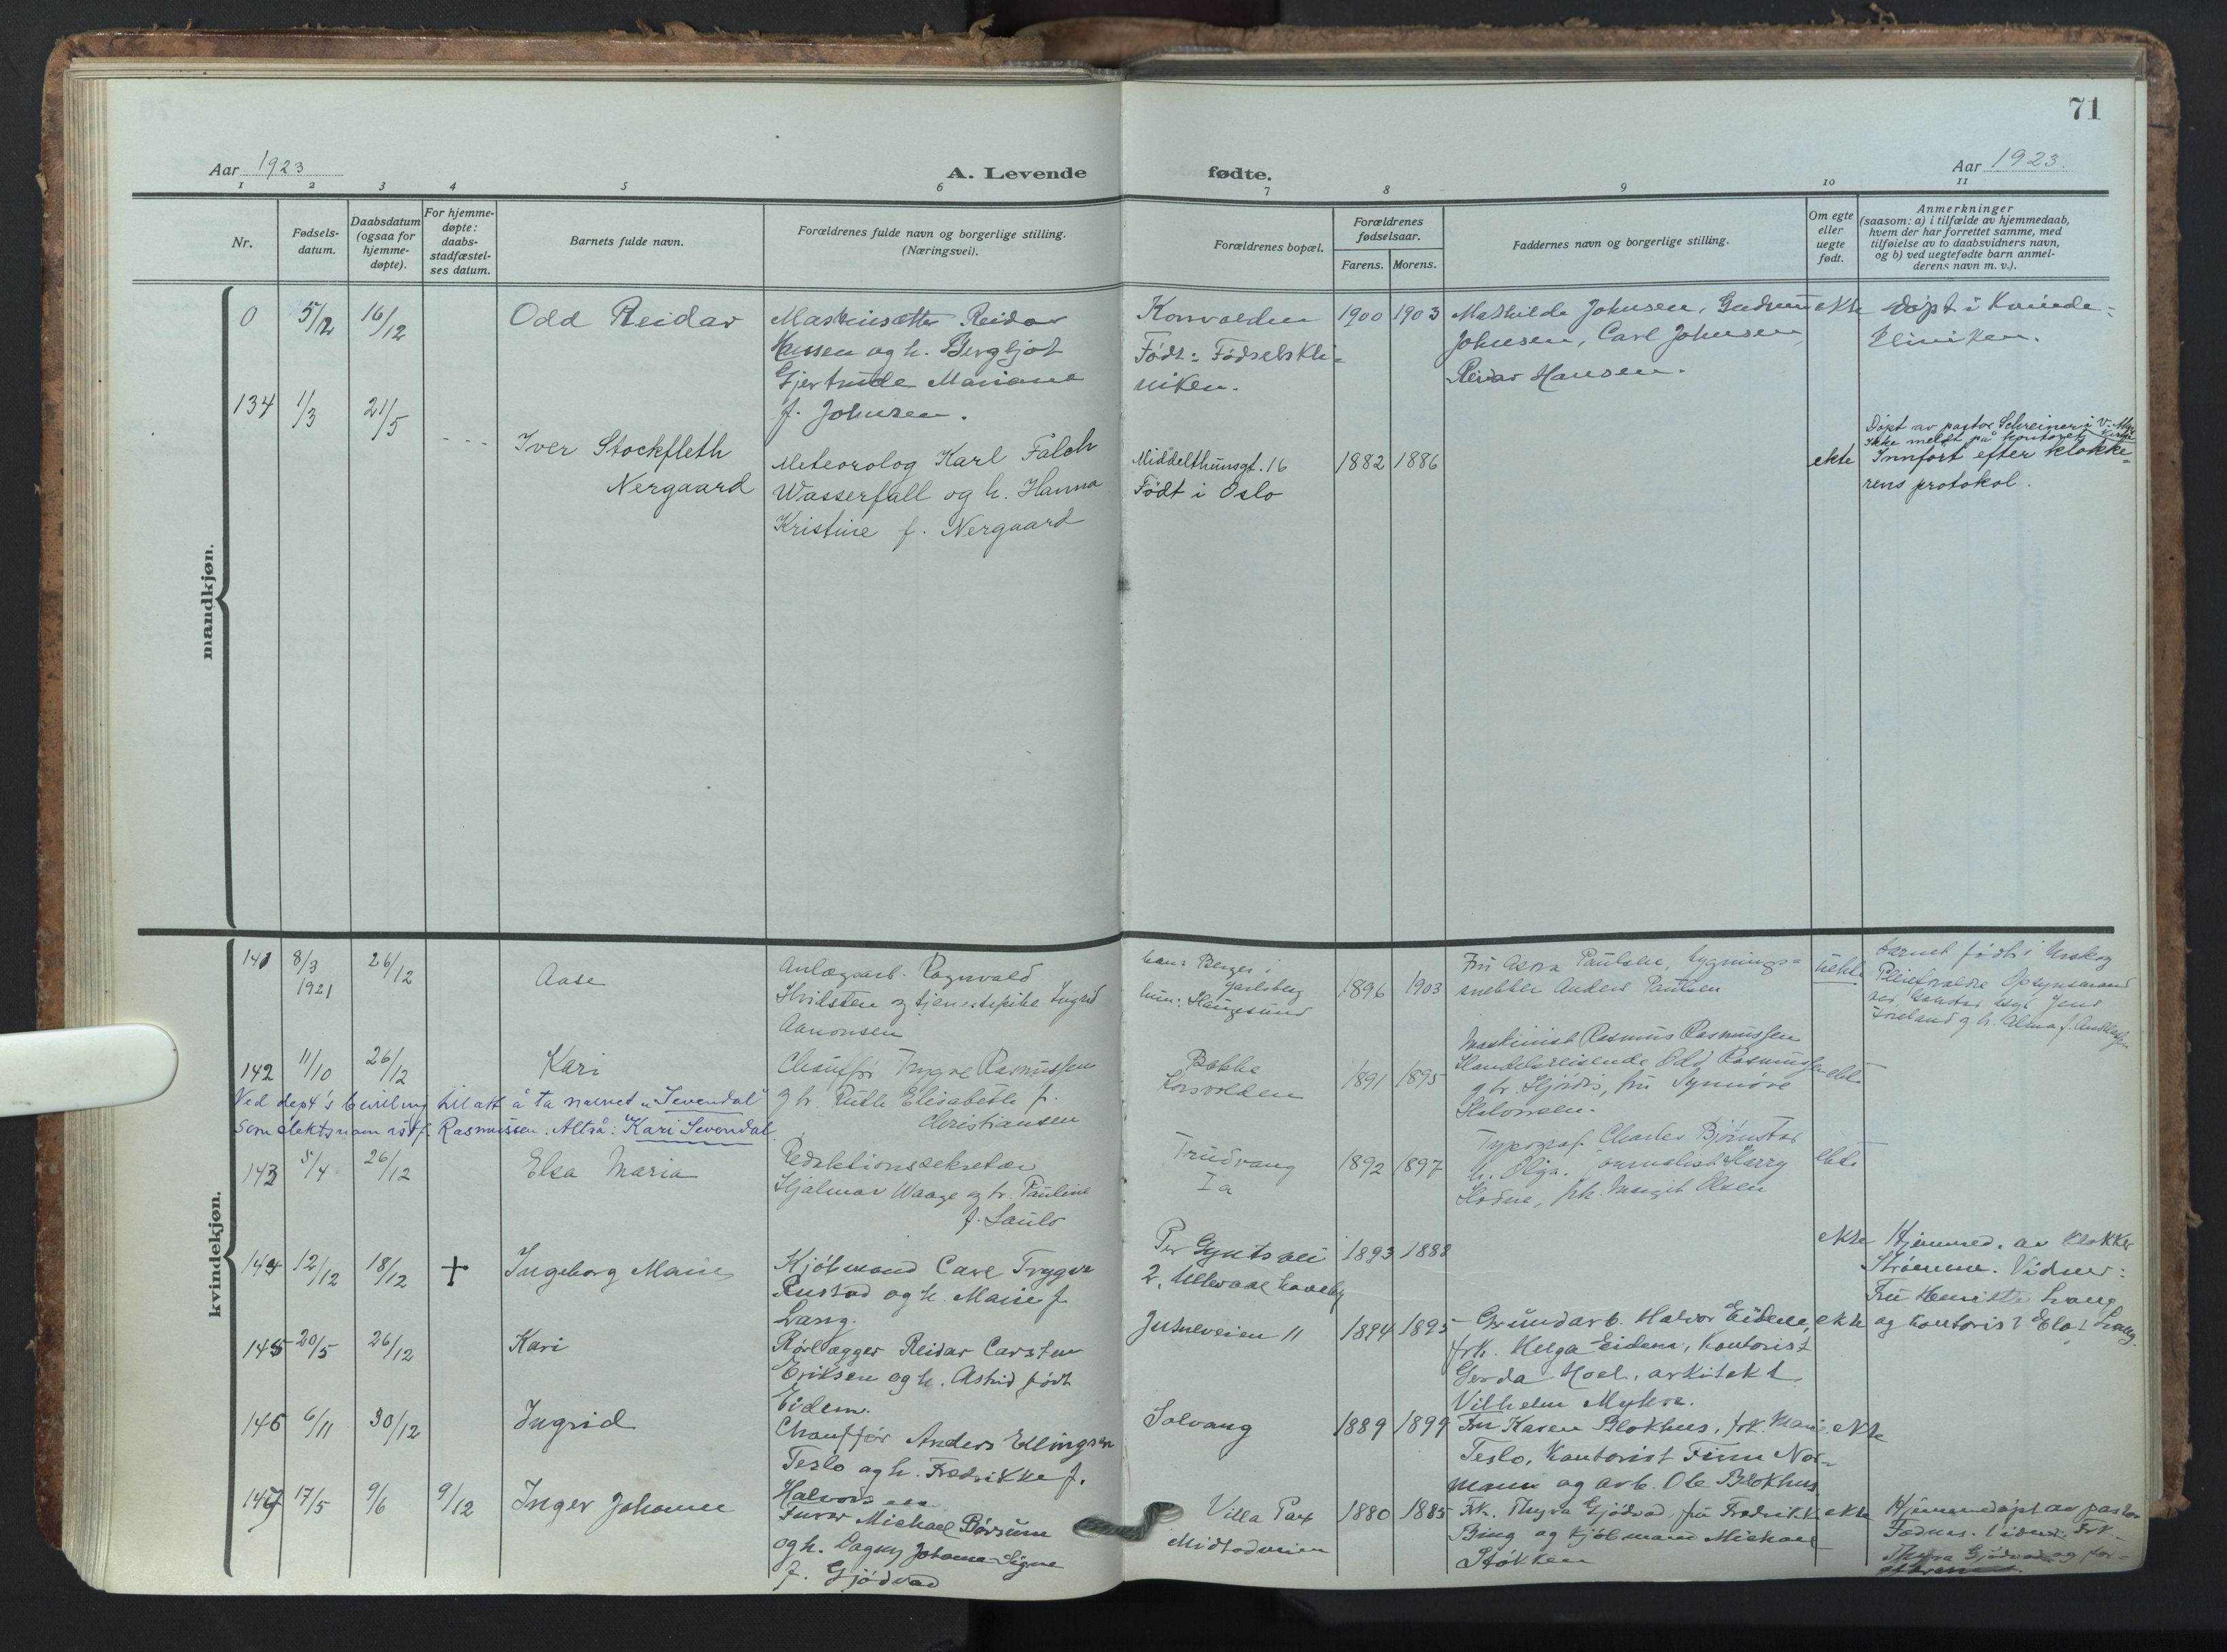 71
Aar 1923
A. Levende fødte.
Aar 1923.
1 2 3 4 5 6 7 8 9 10 11
Nr.
Fødsels-
datum.
Daabsdatum
(ogsaa for
hjemme-
døpte).
For hjemme-
døpte:
daabs-
stadfæstel-
ses datum.
Barnets fulde navn.
Forældrenes fulde navn og borgerlige stilling.
(Næringsvei).
Forældrenes bopæl.
Forældrenes
fødselsaar.
Farens. Morens.
Faddernes navn og borgerlige stilling.
Om egte
eller
uegte
født.
Anmerkninger
(saasom: a) i tilfælde av hjemmedaab,
hvem der har forrettet samme, med
tilføielse av to daabsvidners navn,
og b) ved uegtefødte barn anmel-
derens navn m. v.).
mandkjøn.
0 5/12 16/12
Odd Reidar
Maskinsætter Reidar
Hansen og h. Bergljot
Gjertrude Mariane
f. Johnsen.
Korsvolden
Født: Fødselskli-
niken.
1900 1903
Mathilde Johnsen, Gudrun
Johnsen, Carl Johnsen,
Reidar Hansen.
ekte
Døpt i Kvinde-
kliniken.
134 1/3 21/5 - - -
Iver Stockfleth
Nergaard
Meteorolog Karl Falch
Wasserfall og h. Hanna
Kristine f. Nergaard
Middelthunsgt. 16
Født i Oslo
1882 1886
ekte
Døpt av pastor Schreiner i V. Aker
Kirke
Ikke meldt på kontoret
Innført efter klokke-
rens protokol.
kvindekjøn.
141 8/3 1921 26/12
Aase
Anlægsarb. Ragnvald
Hvilsten og tjenestepike Ingrid
Aanonsen
han: Berger i
Jarlsberg
hun: Haugesund
1896 1903
Fru Asora Paulsen, bygnings-
snekker Anders Paulsen
uekte
barnet født i Urskog
og h. Alma f.
142 11/10 26/12
Kari
Chauffør Trygve Rasmussen
og h. Ruth Elisabeth f.
Christiansen
Bakke
Korsvolden
1891 1895
Maskinist Rasmus Rasmussen
Handelsreisende Odd Rasmussen
og h. Hjørdis, fru Synnøve
Halvorsen.
ekte
Ved dept's bevilling tillatt å ta navnet "Sevendal"
som slektsnavn istf. Rasmussen. Altså: "Kari Sevendal.
143 5/4 26/12
Elsa Maria
Redaktionssekretær
Hjalmar Waage og h. Pauline
f. Saulo
Trudvang
Ia
1892 1897
Typograf Charles Bjørnstad
h. Olga. Journalist Harry
Hodne, frk. Margit Olsen
ekte
144 12/12 18/12 +
Ingeborg Marie
Kjøbmand Carl Trygve
Rustad og h. Marie f.
Lang.
Per Gyntsvei
2, Ullevaal haveby
1893 1888
ekte
Hjemmed. av klokker
Strømme. Vidner:
Fru Henriette Lang
og kontorist Elof Lang.
145 20/5 26/12
Kari
Rørlægger Reidar Carsten
Eriksen og h. Astrid født
Eidem.
Jutulveien 11
1894 1895
Grundarb. Halvor Eidem,
frk. Helga Eidem, kontorist
Gerda Hoel, arkitekt
Vilhelm Myhre.
ekte
146 6/11 30/12
Ingrid
Chauffør Anders Ellingsen
Teslo og h. Fredrikke f.
Halvorsen
Solvang
1889 1899
Fru Karen Blokhus, frk. Marie
Teslo, Kontorist Finn Nor-
mann og arb. Ole Blokhus.
ekte
147 17/5 9/6 9/12
Inger Johanne
Furer Michael Børsum
og h. Dagny Johanne Signe
f. Gjödvad
Villa Pax
Midtodveien
1880 1885
Frk. Thyra Gjödvad, fru Fredrikke
Bing og kjöbmand Michael
Stökken
ekte
Hjemmedøpt av pastor
Fodnes. Vidner: Frk.
Thyra Gjödvad og for-
ældrene.